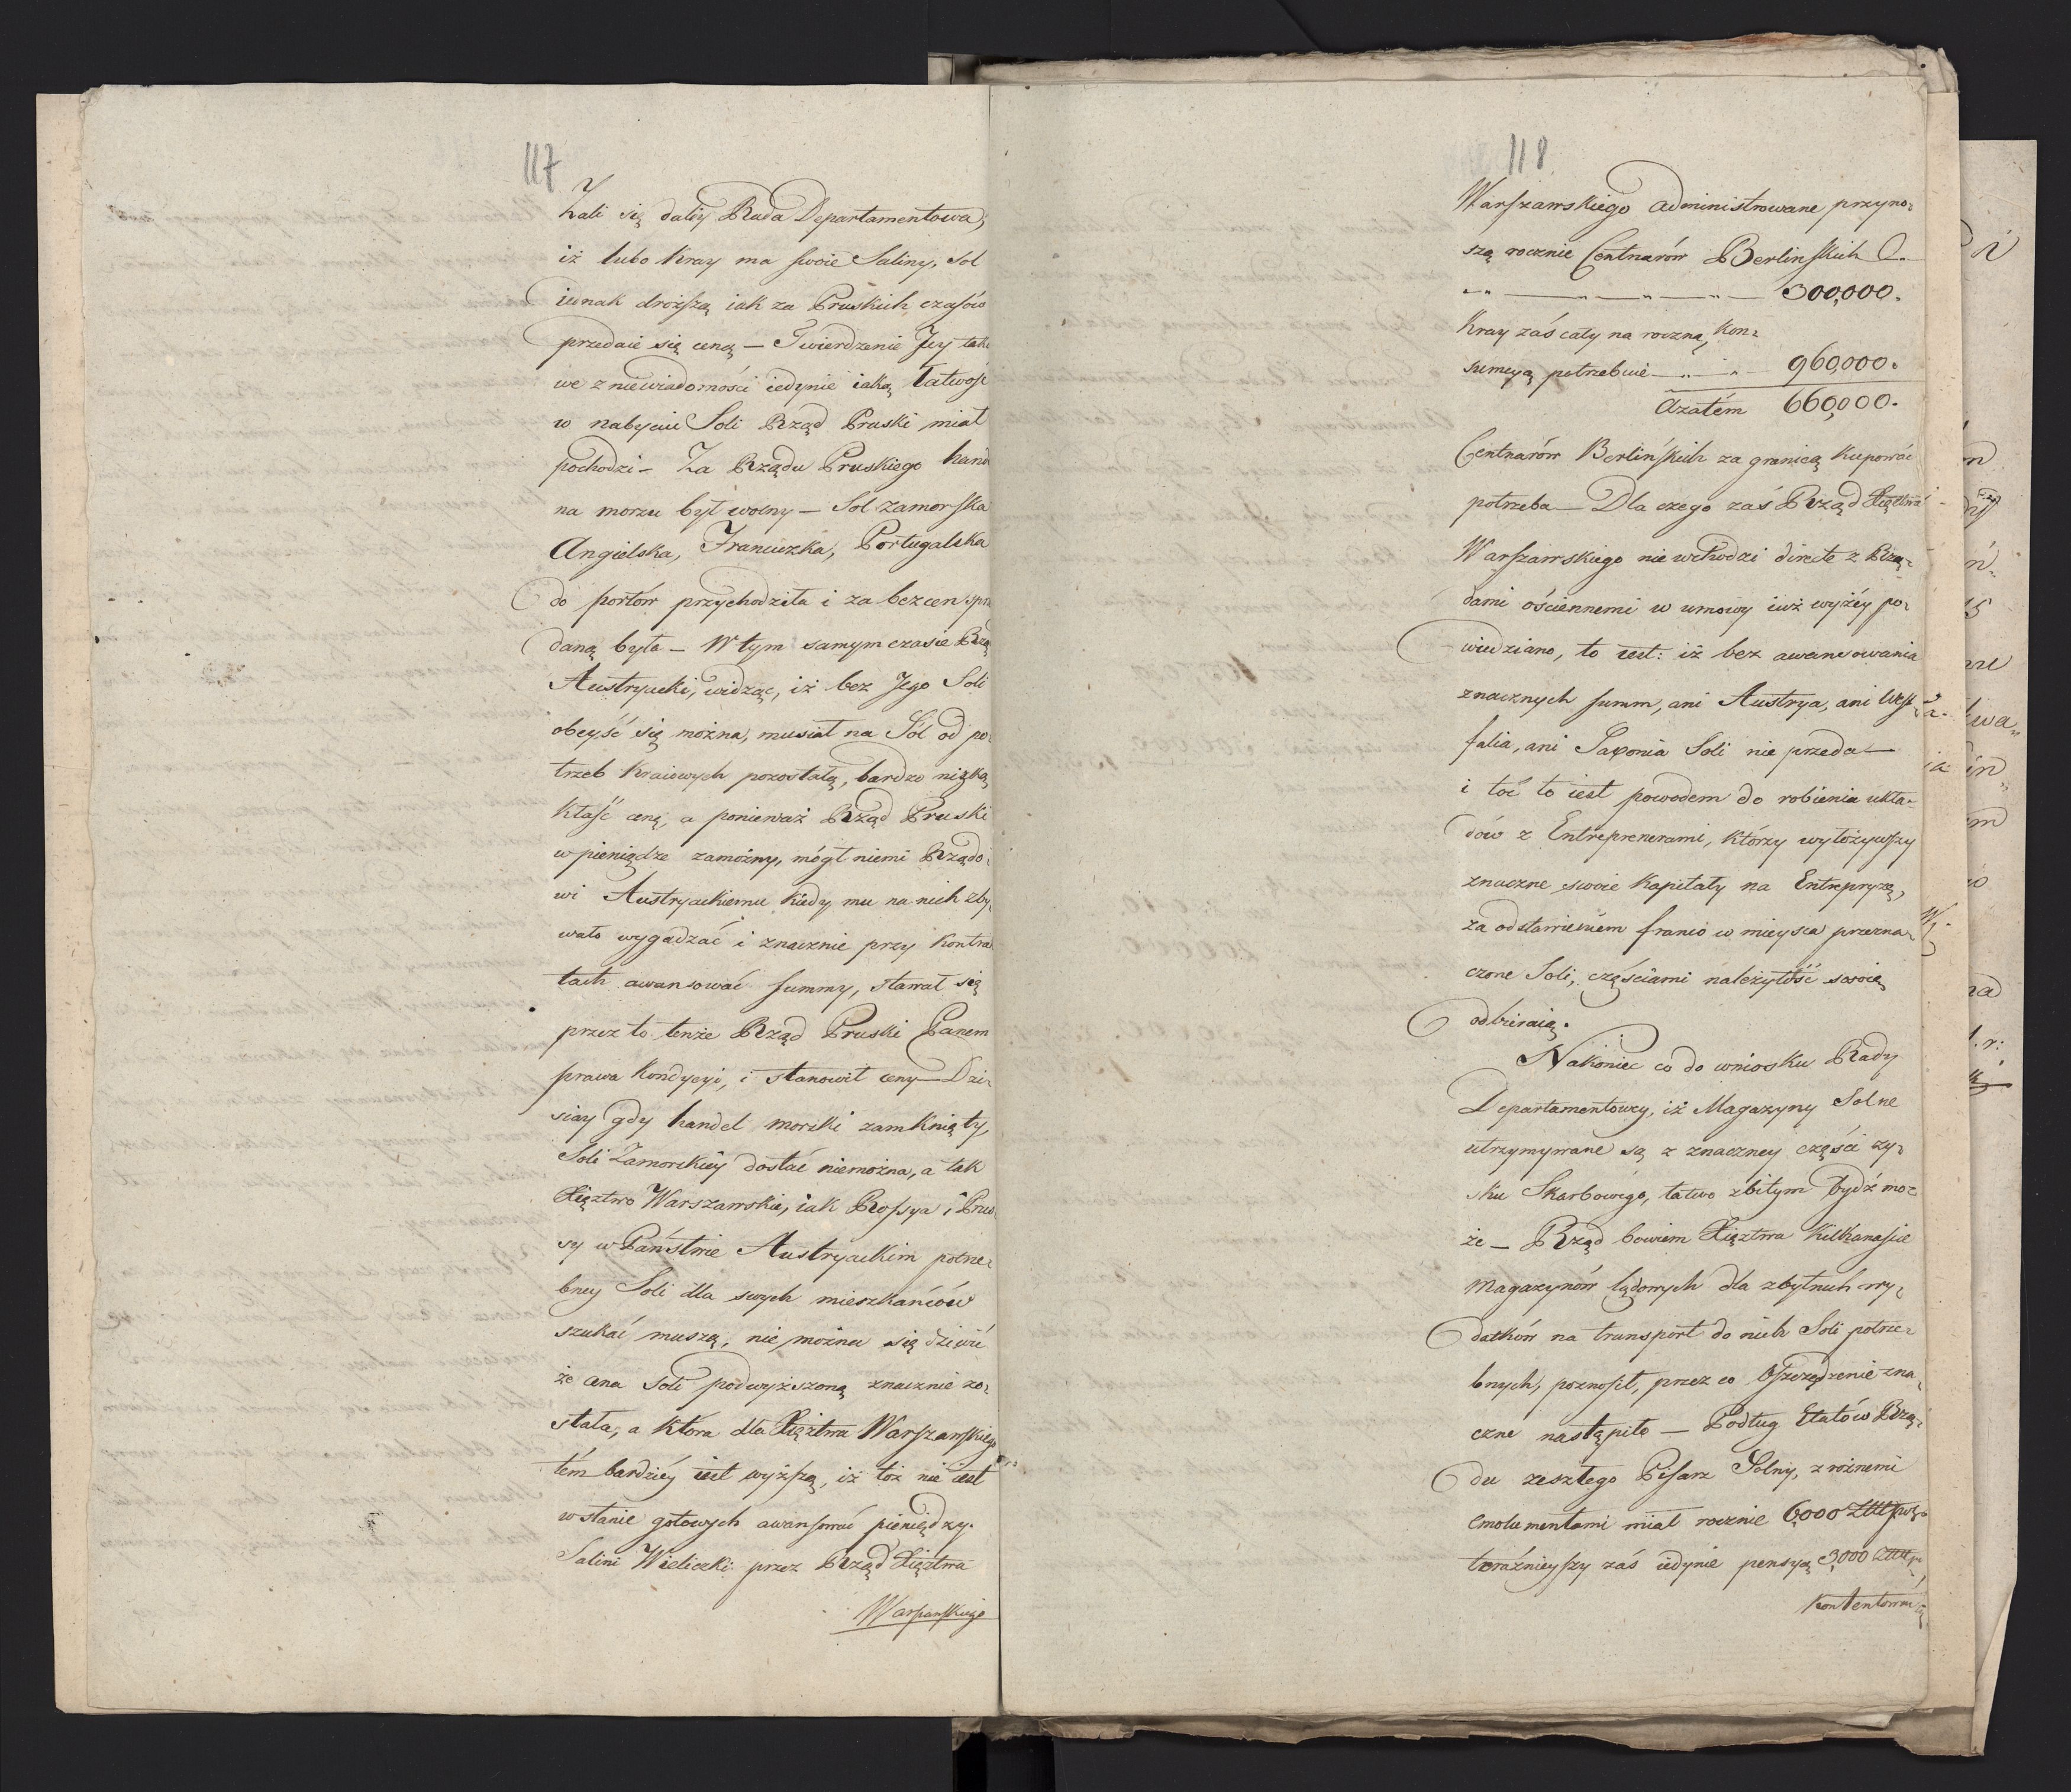 117
Żali się daléy Rada Departamentowa,
iż lubo Kray ma swoie Saliny, Sol
iednak droższą iak za Pruskich czasów
przedaie się ceną — Twierdzenie Jey tak
we z niewiadomości iedynie iaką łatwość
w nabyciu Soli Rząd Pruski miał
pochodzi — Za Rządu Pruskiego hand
na morzu był wolny — Sol zamorska
Angielska, Francuzka, Portugalska
do portów przychodziła i za bezcen spr
daną była — W tym samym czasie Rzą
Austryacki, widząc, iż bez Jego Soli
obeyść się można, musiał na Sól od po-
trzeb Kraiowych pozostałą, bardzo nizką
kłaść cenę, a ponieważ Rząd Pruski
w pieniądze zamożny, mógł niemi Rządo-
wi Austryackiemu kiedy mu na nich zby-
wało wygadzać i znacznie przy Kontra
tach awansować summy, stawał się
przez to tenże Rząd Pruski Panem
prawa Kondycyi, i stanowił ceny — Dzi-
siay gdy handel morski zamknięty,
Soli Zamorskiéy dostać niemożna, a tak
Xięztwo Warszawskie, iak Rossya i Pru-
sy w Państwie Austryackim potrze-
bney Soli dla swych mieszkańców
szukać muszą, nie można się dziwić
że cena Soli podwyższoną znacznie zo-
stała, a która dla Xięztwa Warszawskiego
tém bardziéy iest wyższą, iż toż nie iest
w stanie gotowych awansować pieniędzy.
Salini Wieliczki przez Rząd Xięztwa
Warszawskiego
118
Warszawskiego administrowane przyno-
szą rocznie Centnarów Berlinskich
300,000.
Kray zaś cały na roczną Kon-
sumcyą potrzebuie 960,000.
Azatém 660,000.
Centnarów Berlińskich za granicą kupować
potrzeba — Dla czego zaś Rząd Xięztwa
Warszawskiego nie wchodzi directe z Rzą-
dami ościennemi w umowy iuż wyżéy po-
wiedziano, to iest: iż bez awansowania
znacznych summ, ani Austrya, ani West
falia, ani Saxonia Soli nie przeda —
i toć to iest powodem do robienia ukła-
dów z Entreprenerami, którzy wyłożywszy
znaczne swoie Kapitały na Entrepryzę,
za odstawieniem franco w mieysca przezna-
czone Soli, częściami należytość swoią
odbieraią.
Nakoniec co do wniosku Rady
Departamentowey, iż Magazyny Solne
utrzymywane są z znaczney części zy-
sku Skarbowego, łatwo zbitym bydź mo-
że — Rząd bowiem Xięztwa Kilkanaście
Magazynów lądowych dla zbytnich wy-
datków na transport do nich Soli potrze-
bnych, poznosił, przez co Oszczędzenie zna-
czne nastąpiło — Podług Etatów Rzą-
du zeszłego Pisarz Solny, z różnemi
emolumentami miał rocznie 6,000
teraźnieyszy zaś iedynie pensyą 3,000
Kontentować